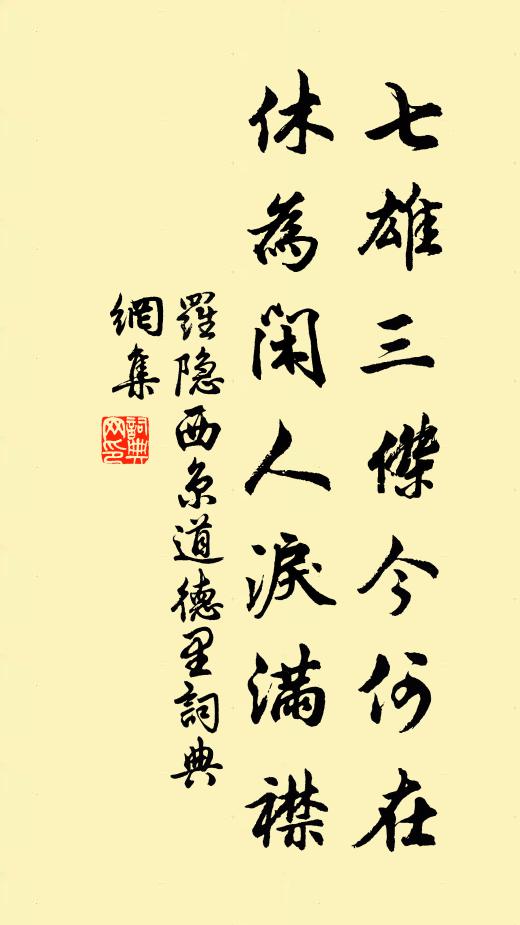 七雄三傑今何在
休為閑人淚滿襟
羅隐西京道德里詞典
網集
詞典網印